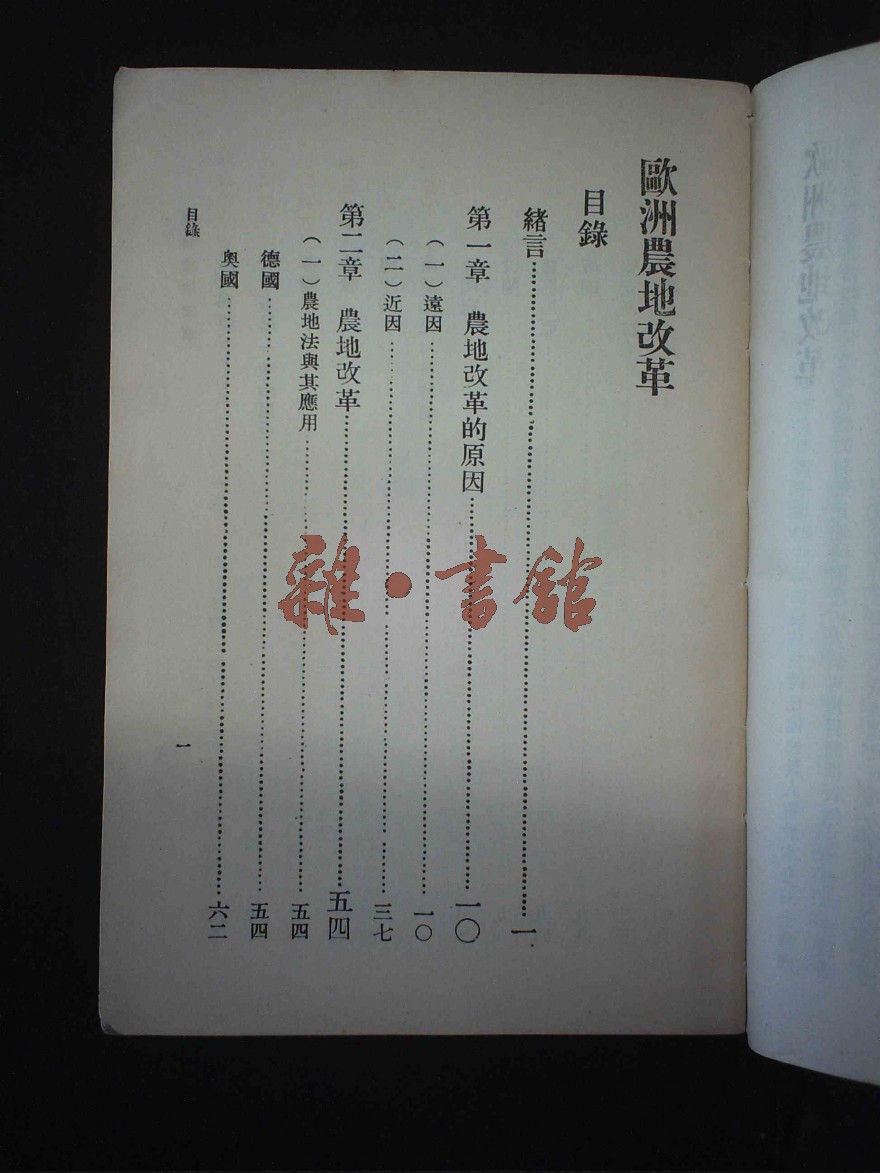 歐洲農地改革
目錄
緒言……………………一
第一章　農地改革的原因……………………一〇
（一）遠因……………………一〇
（二）近因……………………三七
第二章　農地改革……………………五四
（一）農地法與其應用……………………五四
德國……………………五四
奧國……………………六二
目錄
一
雜·書館